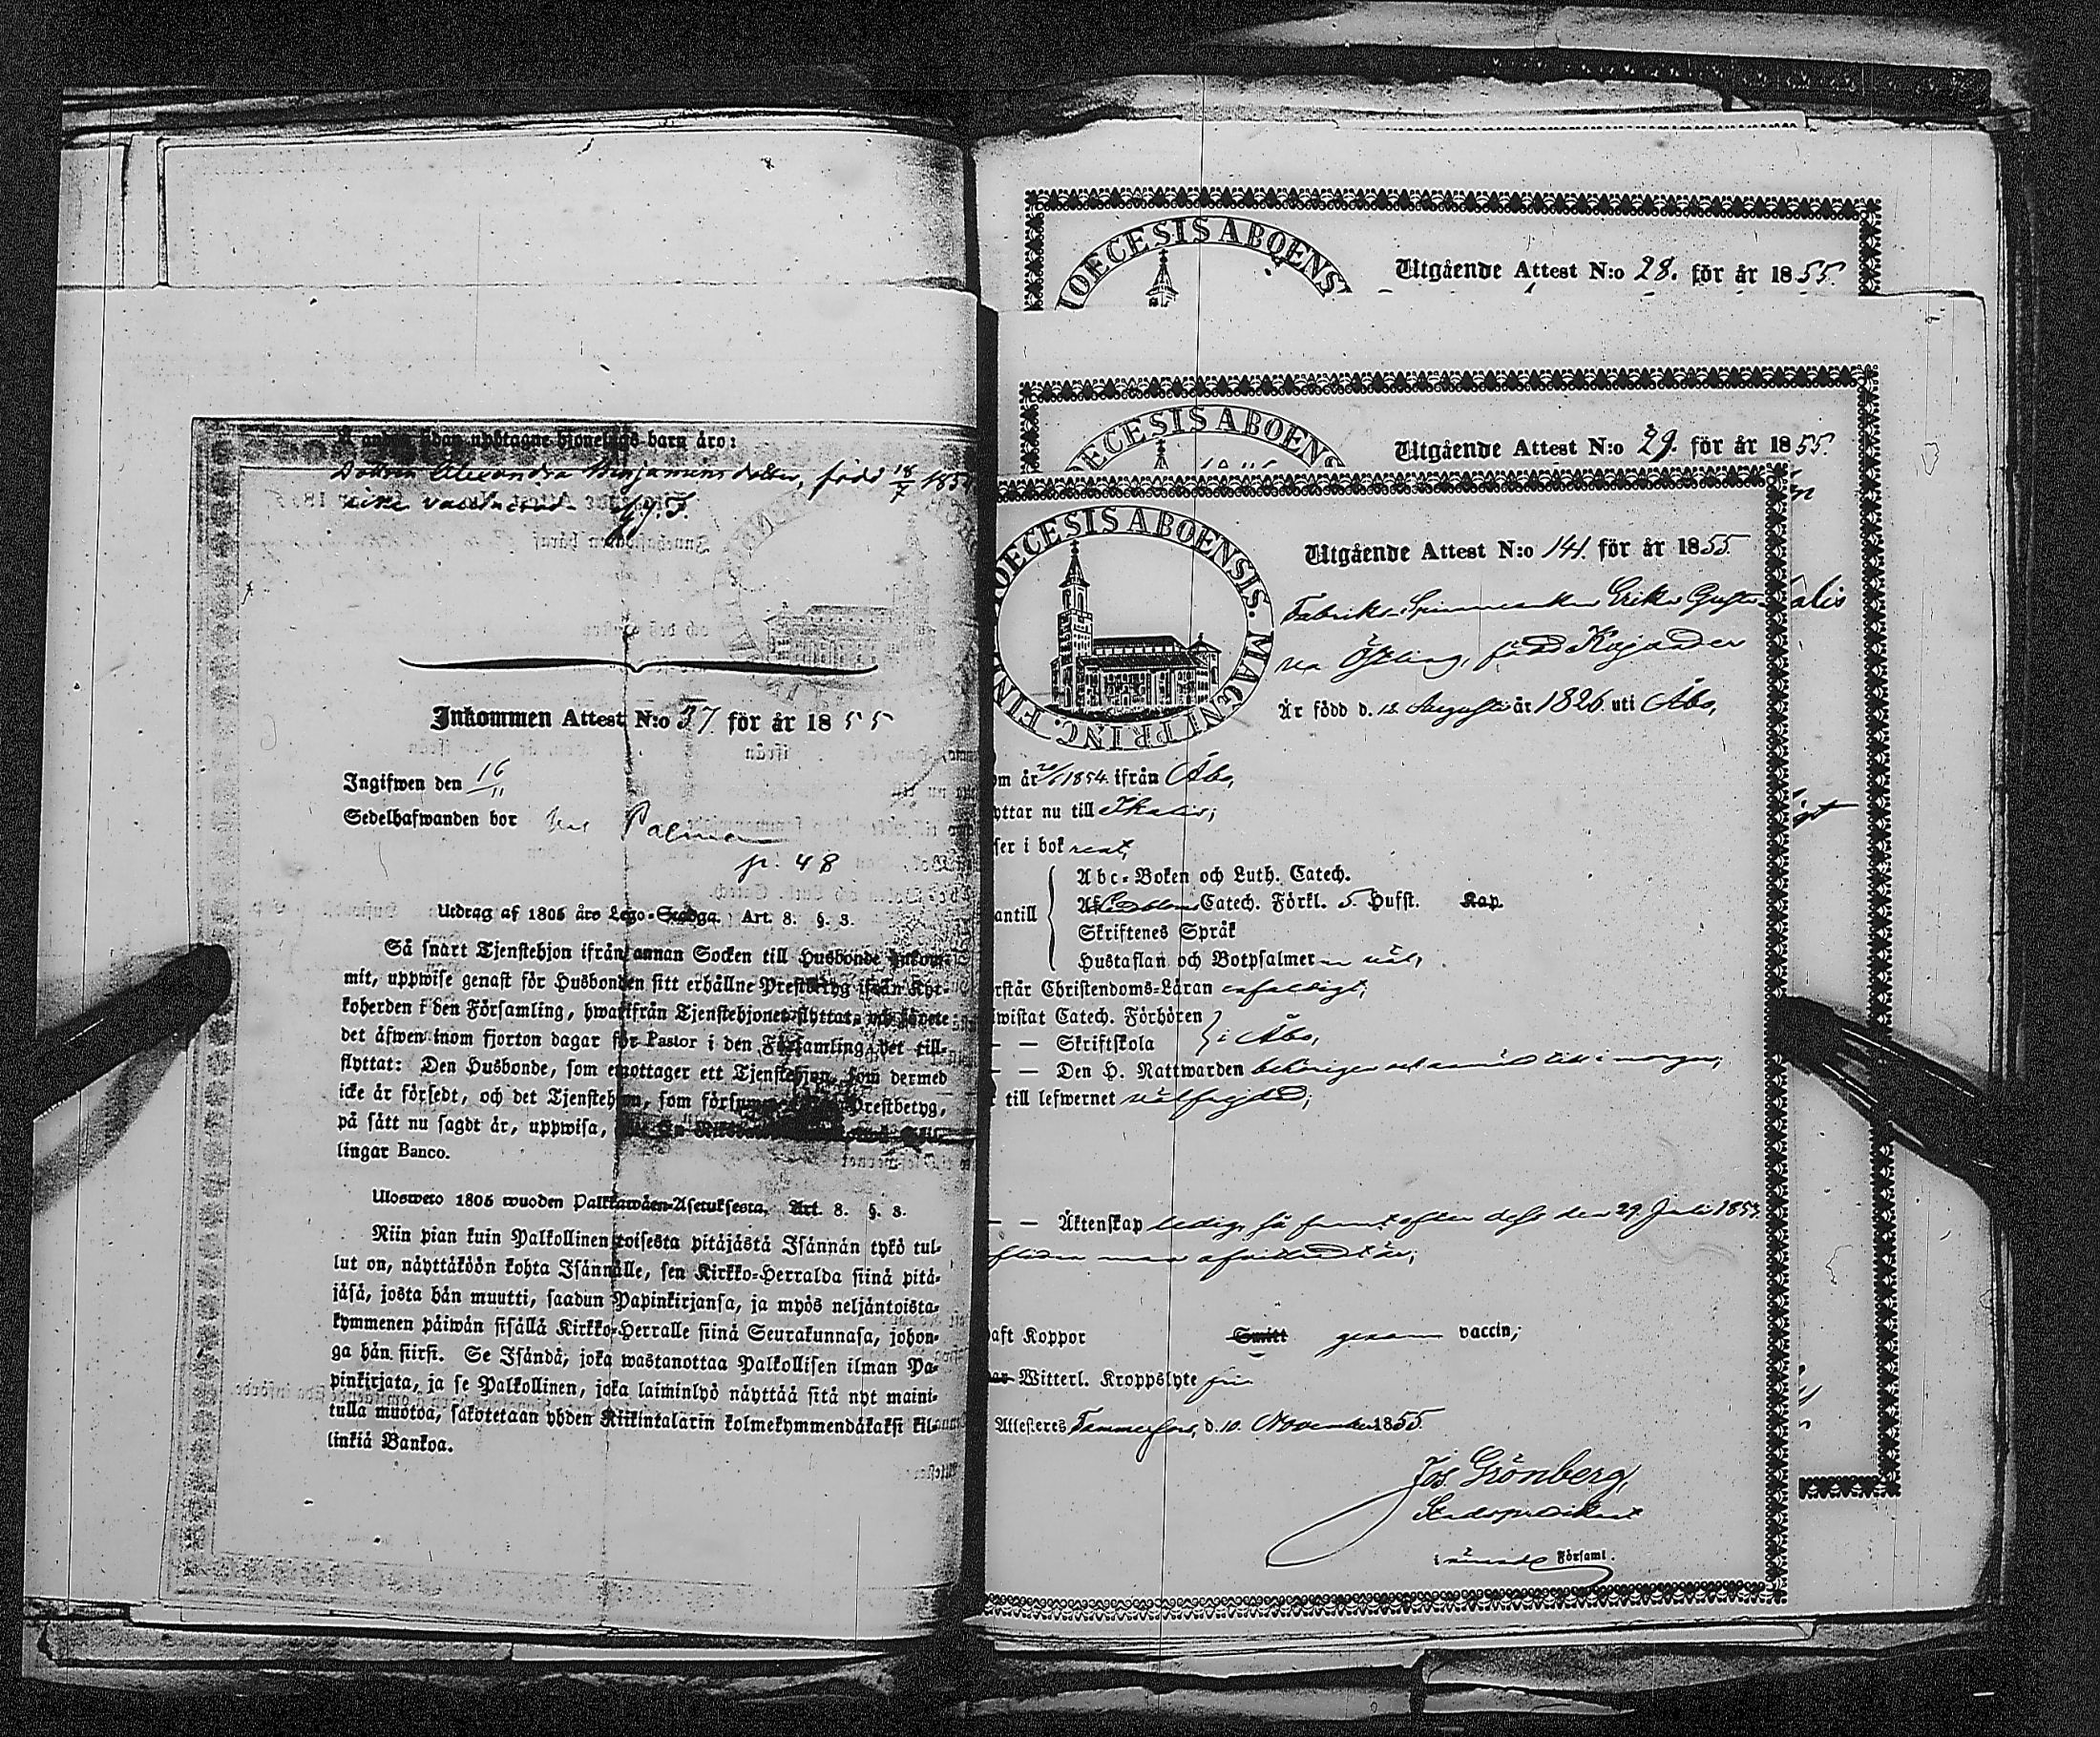 barn äro:
Dottren Alexandra Benjaminsdotter, född 18/7 185
icke vaccinerad.
Inkommen Attest N:o 37. för år 1855
Ingifwen den 16/11
Sedelhafwanden bor hos Palmen
p. 48
Utdrag af 1805 års Lego-Stadga. Art. 8. §. 3.
Så snart Tjenstehjon ifrån annan Socken till Husbonde inkom-
mit, uppwise genast för Husbonden sitt erhållne Prestbetyg ifrån Kyr-
koherden i den Församling, hwarifrån Tjenstehjonet flyttat, och
det äfwen inom fjorton dagar för Pastor i den Församling, det till-
flyttat: Den Husbonde, som emottager ett Tjenstehjon, som dermed
icke är försedt, och det Tjenstehjon, som försummar Prestbetyg,
på sätt nu sagdt är, uppwisa,
lingar Banco.
Ulosweto 1805 wuoden Palkkawäen-Asetuksesta, Art. 8. §. 3.
Niin pian kuin Palkollinen toisesta pitäjästä Isännän tykö tul-
lut on, näyttäköön kohta Isännälle, sen Kirkko-Herralda siinä pitä-
jäsä, josta hän muutti, saadun Papinkirjansa, ja myös neljäntoista-
kymmenen päiwän sisällä Kirkko-Herralle siinä Seurakunnasa, johon-
ga hän siirsi. Se Isändä, joka wastanottaa Palkollisen ilman Pa-
pinkirjata, ja se Palkollinen, joka laiminlyö näyttää sitä nyt maini-
tulla muotoa, sakotetaan yhden Riikintalarin kolmekymmendäkaksi kil-
linkiä Bankoa.
IOECESIS ABOENS
Utgående Attest N:o 28. för år 1855.
ECESIS ABOENS
Utgående Attest N:o 29. för år 1855.
OECESIS ABOENSIS. MAGNI PRINC. FIN
Utgående Attest N:o 141. för år 1855.
Fabriks Spinnerskan Erika Gusta
va Östling, född Kajander
alis
Är född d. 12. Augusti år 1826. uti Åbo,
om år 20/6 1854. ifrån Åbo,
yttar nu till Ikalis;
ser i bok rent,
Abc-Boken och Luth. Catech.
antill
Catech. Förkl. 5. Hufst. Kap.
Skriftenes Språk
Hustaflan och Botpsalmerna wäl,
rstår Christendoms-Läran enfaldigt,
wistat Catech. Förhören
— — Skriftskola
i Åbo,
— — Den H. Nattwarden behörigen och anmäld till i morgon;
till lefwernet wälfrejdad;
— — Äktenskap ledig, så framt efter dess den 29. Juli 1853.
man afwittradt är;
haft Koppor Smitt genom vaccin;
Witterl. Kroppslyte fri
Attesteres Tammerfors, d. 10. November 1855.
Jos. Grönberg,
Stadspredikant
i nämnde Församl.